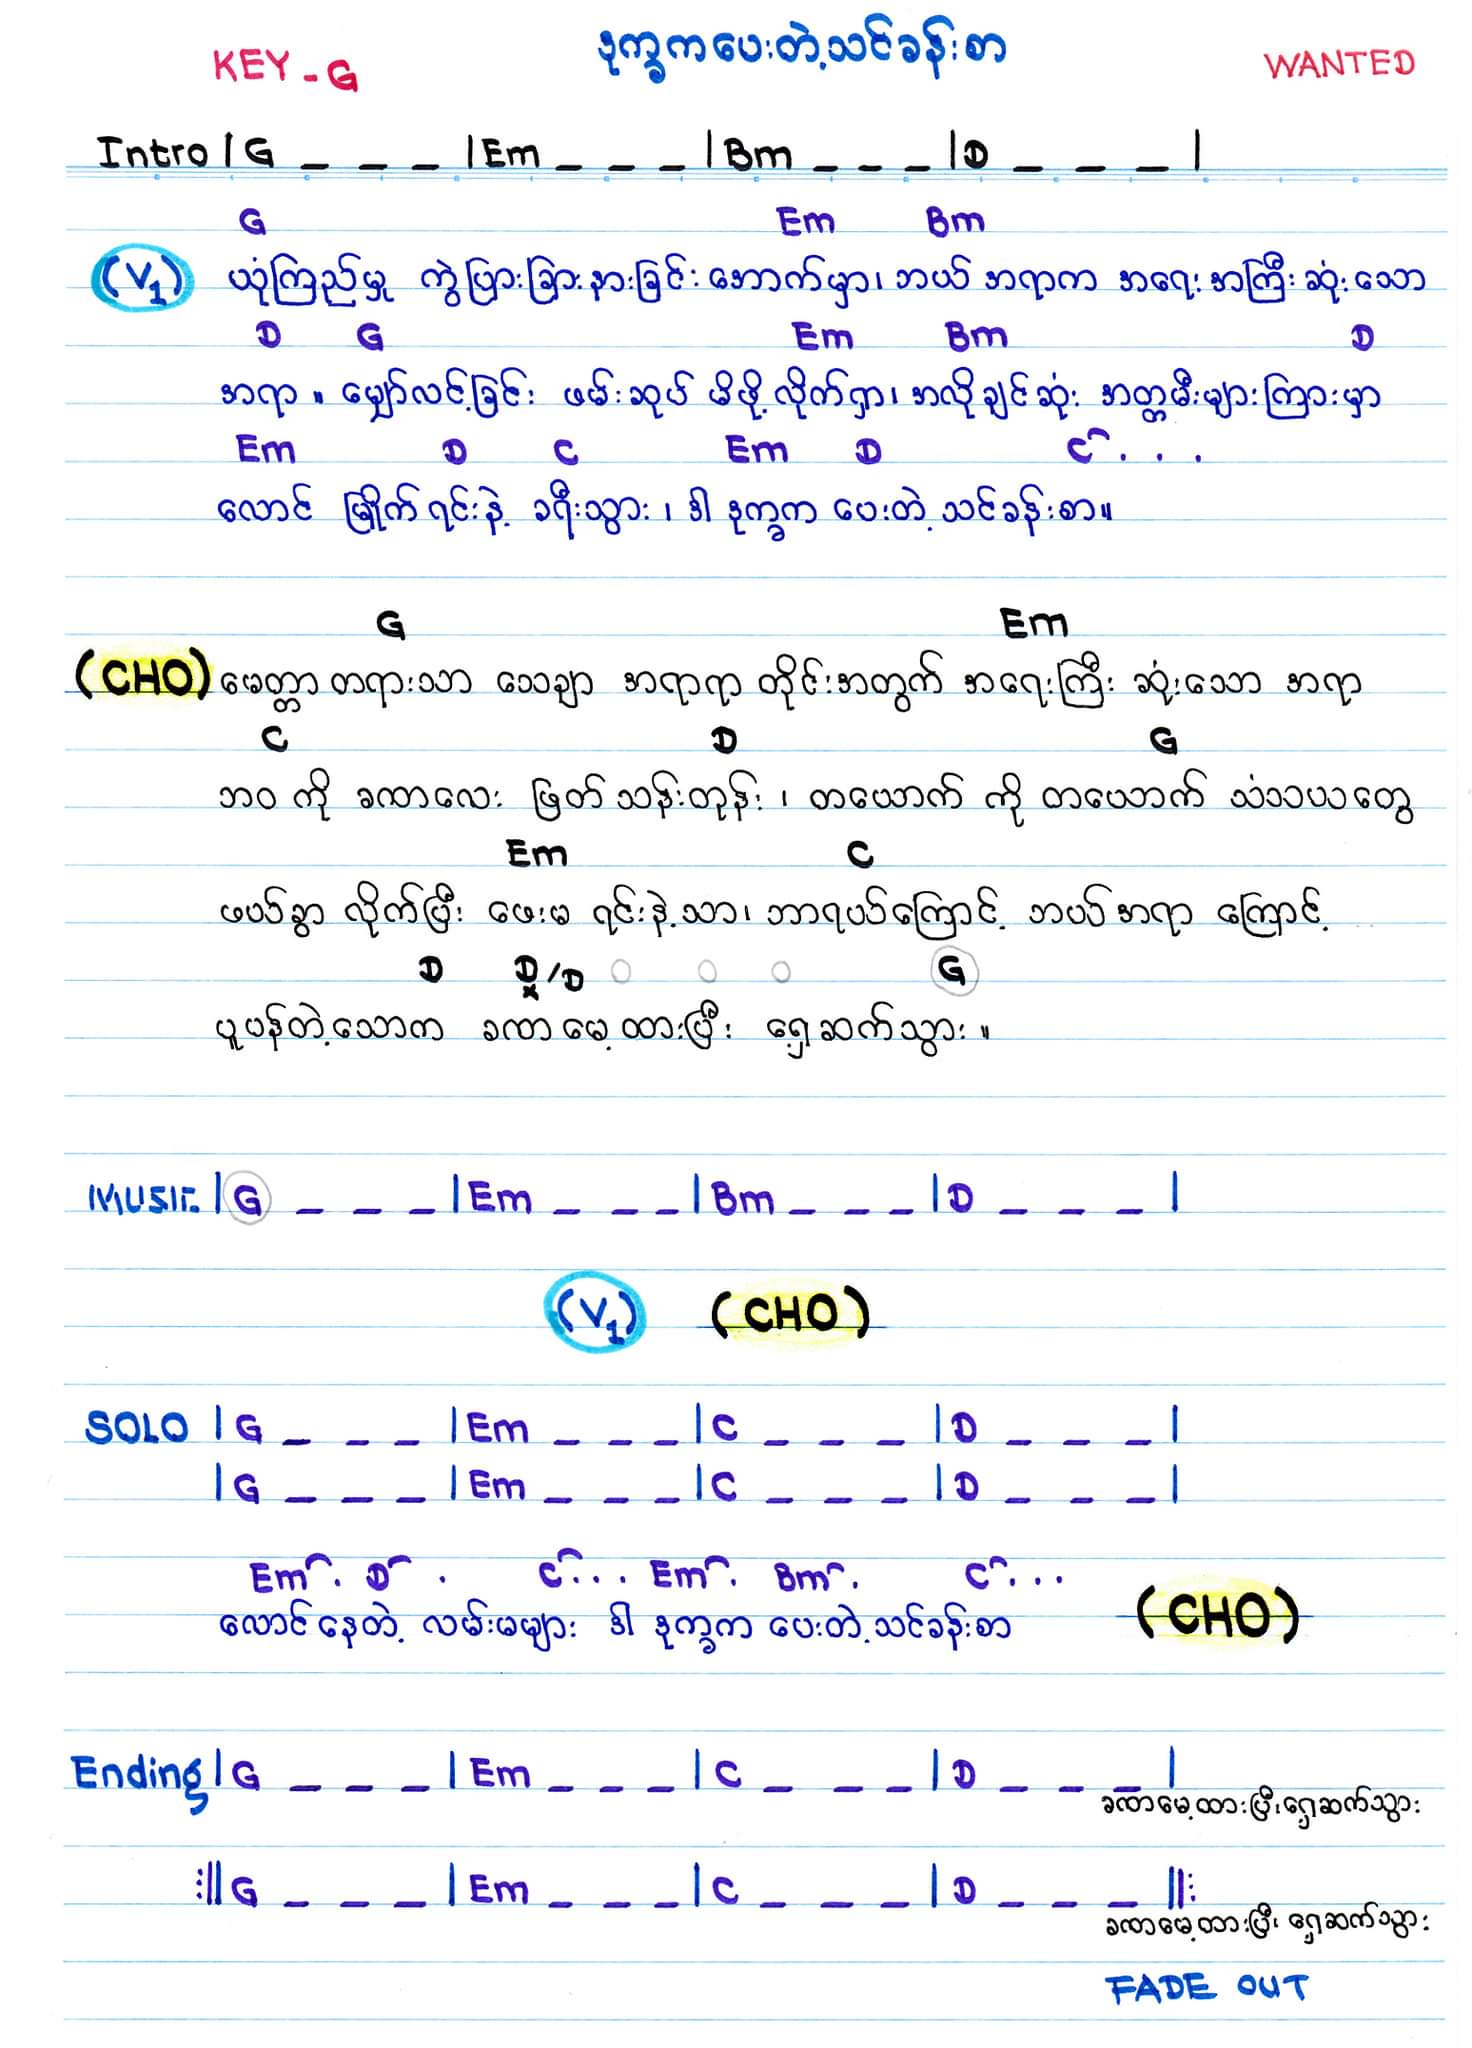 ဒုက္ခကပေးတဲ့သင်ခန်းစာ
KEY - G
WANTED
Intro | G _ _ _ | Em _ _ _ | Bm _ _ _ | D _ _ _ |
G Em Bm
(V1) ယုံကြည်မှု ကွဲပြားခြားနားခြင်းအောက်မှာ၊ ဘယ် အရာက အရေးအကြီးဆုံးသော
D G Em Bm D
အရာ။ မျှော်လင့်ခြင်း ဖမ်းဆုပ် မိဖို့လိုက်ရှာ၊ အလိုချင်ဆုံး အတ္တမီးများကြားမှာ
Em D C Em D C . . .
လောင် မြိုက်ရင်းနဲ့ ခရီးသွား၊ ဒါ ဒုက္ခက ပေးတဲ့ သင်ခန်းစာ။
G Em
(CHO) မေတ္တာတရားသာ သေချာ အရာရာ တိုင်းအတွက် အရေးကြီး ဆုံးသော အရာ
C D G
ဘဝ ကို ခဏလေး ဖြတ်သန်းတုန်း၊ တယောက် ကို တယောက် သံသယတွေ
Em C
ဖယ်ခွာ လိုက်ပြီး ဖေးမ ရင်းနဲ့သာ၊ ဘာရယ်ကြောင့် ဘယ်အရာ ကြောင့်
D D/D G
ပူပန်တဲ့သောက ခဏမေ့ထားပြီး ရှေ့ဆက်သွား။
MUSIC | G _ _ _ | Em _ _ _ | Bm _ _ _ | D _ _ _ |
(V1) (CHO)
SOLO | G _ _ _ | Em _ _ _ | C _ _ _ | D _ _ _ |
| G _ _ _ | Em _ _ _ | C _ _ _ | D _ _ _ |
Em . D . C . . . Em . Bm . C . . .
လောင်နေတဲ့ လမ်းမများ ဒါ ဒုက္ခက ပေးတဲ့သင်ခန်းစာ (CHO)
Ending | G _ _ _ | Em _ _ _ | C _ _ _ | D _ _ _ |
ခဏမေ့ထားပြီးရှေ့ဆက်သွား
:|| G _ _ _ | Em _ _ _ | C _ _ _ | D _ _ _ ||:
ခဏမေ့ထားပြီး ရှေ့ဆက်သွား
FADE OUT